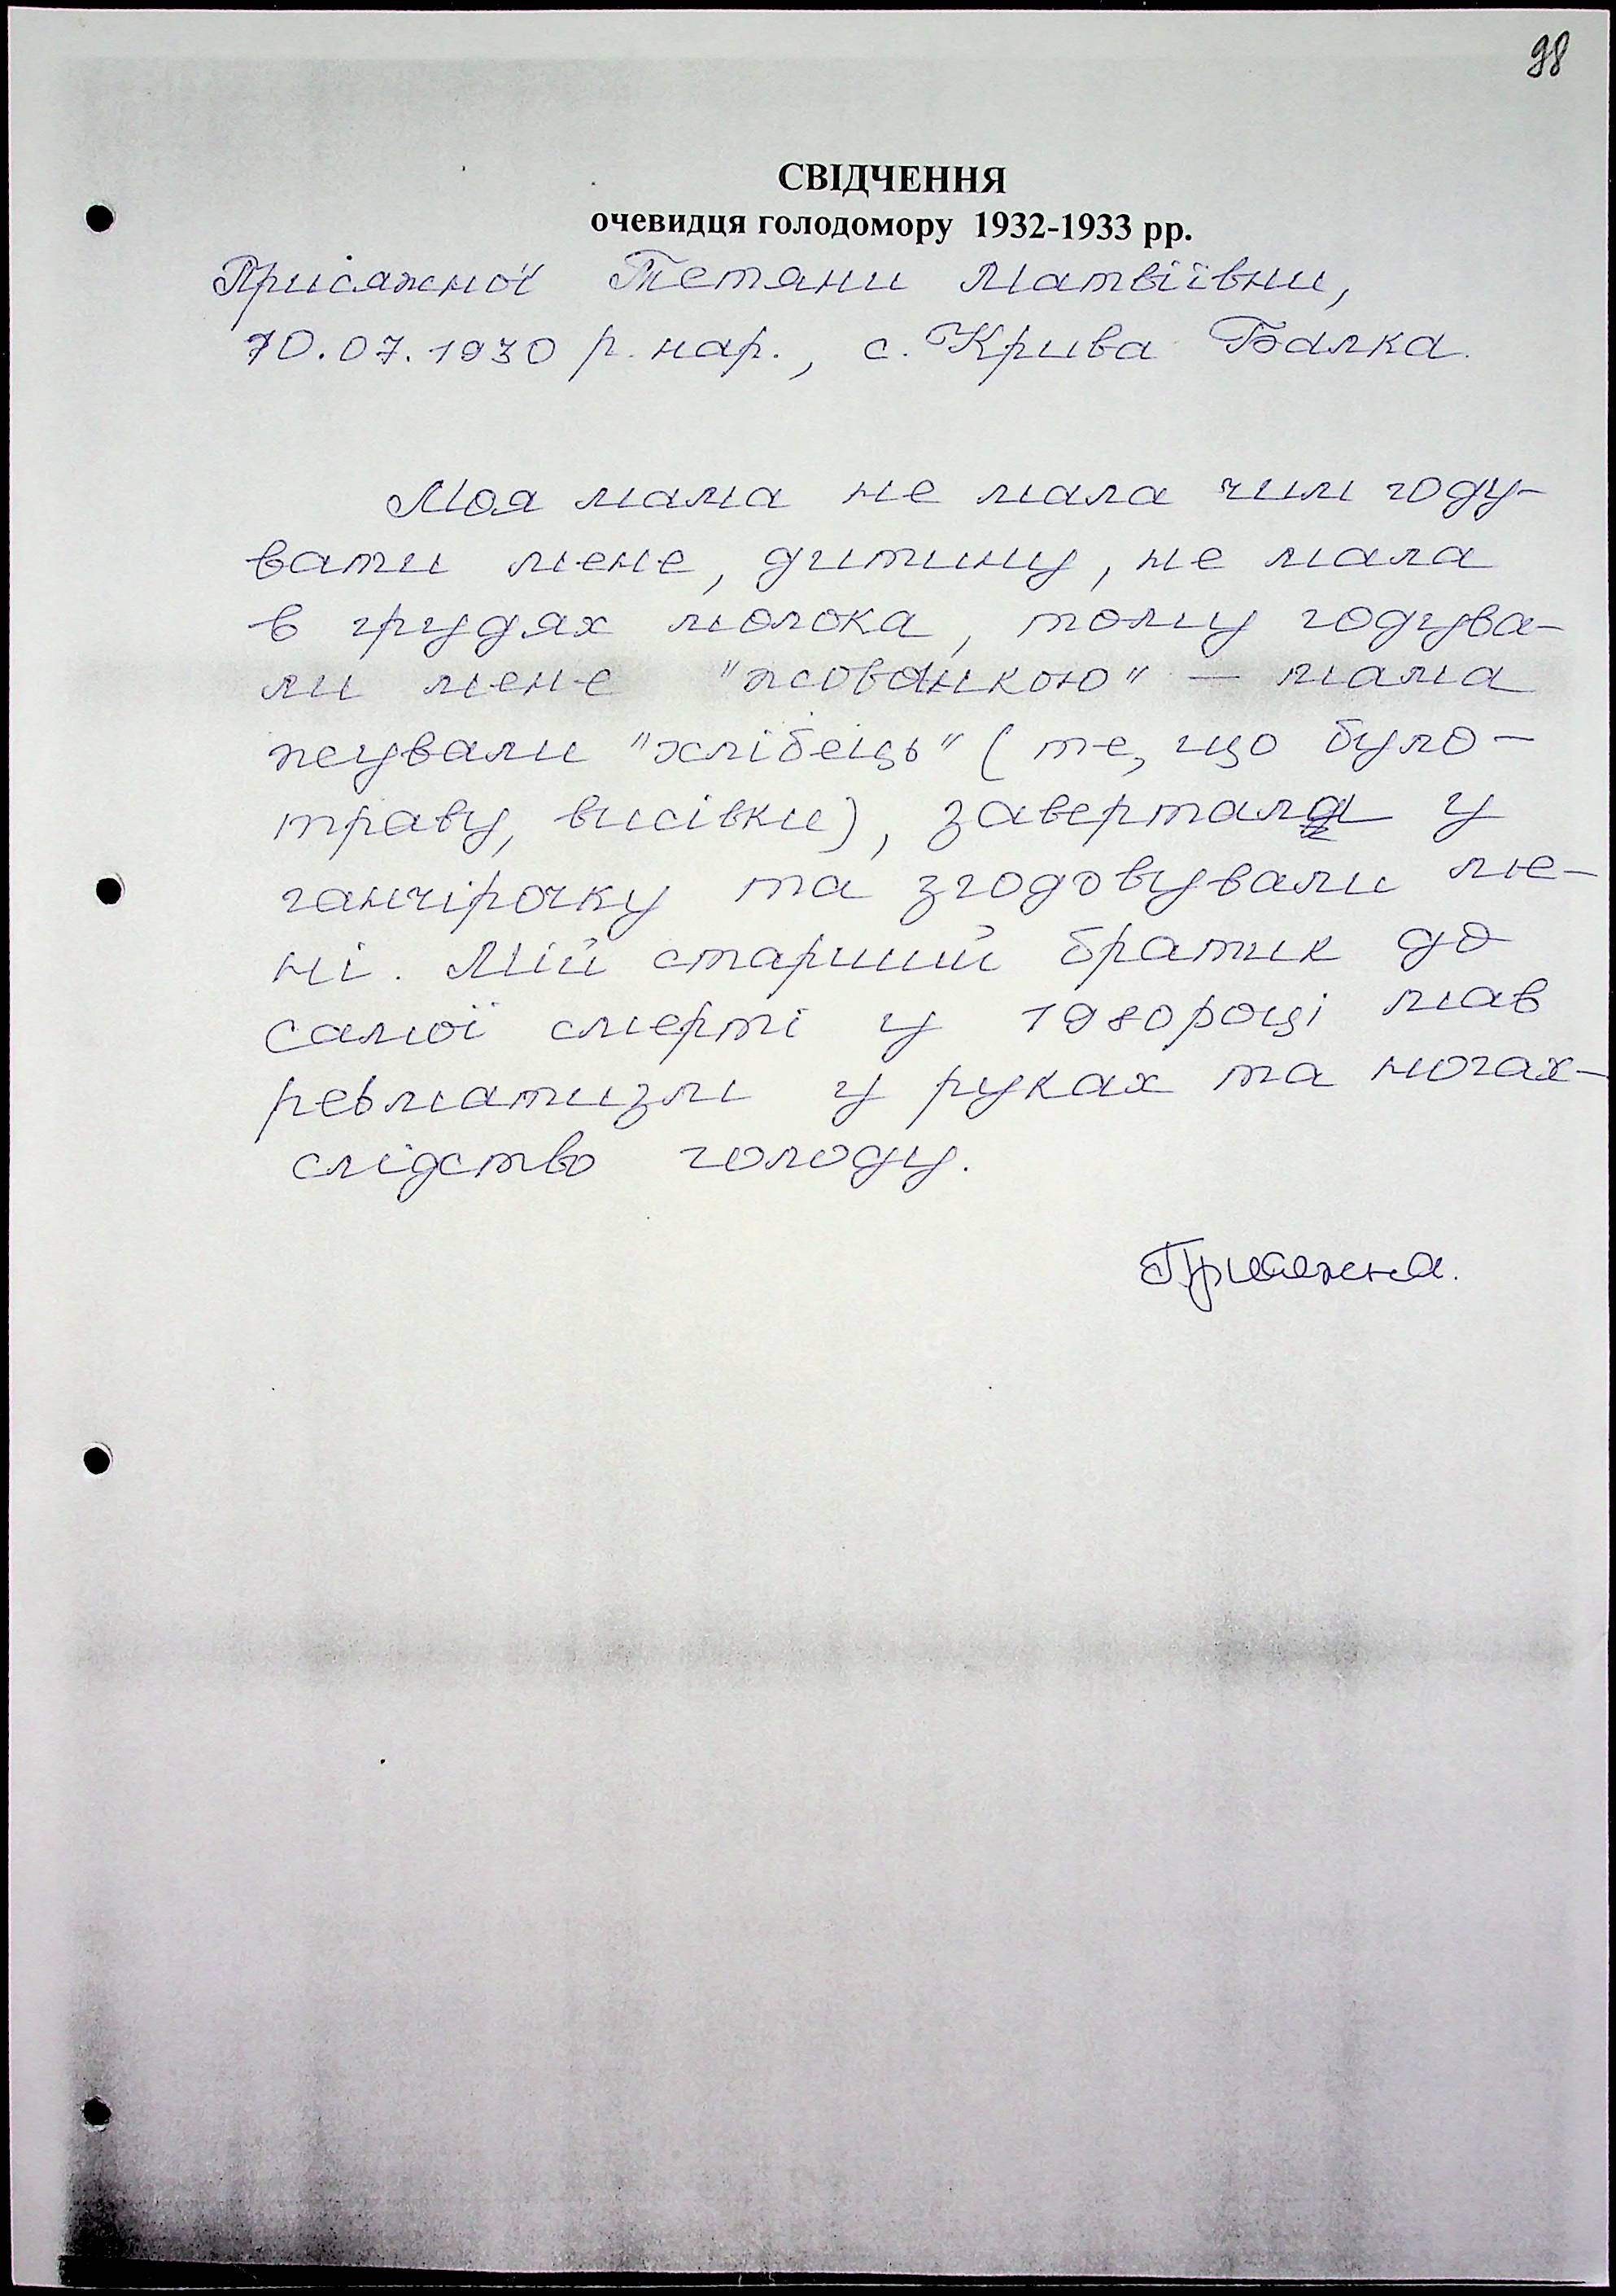 98
СВІДЧЕННЯ
очевидця голодомору 1932-1933 рр.
Присяжної Тетяни Матвіївни,
10.07.1930 р. нар., с. Крива Балка.
Моя мама не мала чим году-
вати мене, дитину, не мала
в грудях молока, тому годува-
ли мене "жованкою" — мама
жували "хлібець" (те, що було —
траву, висівки), завертали у
ганчірочку та згодовували ме-
ні. Мій старший братик до
самої смерті у 1980 році мав
ревматизм у руках та ногах —
слідство голоду.
Присяжна.